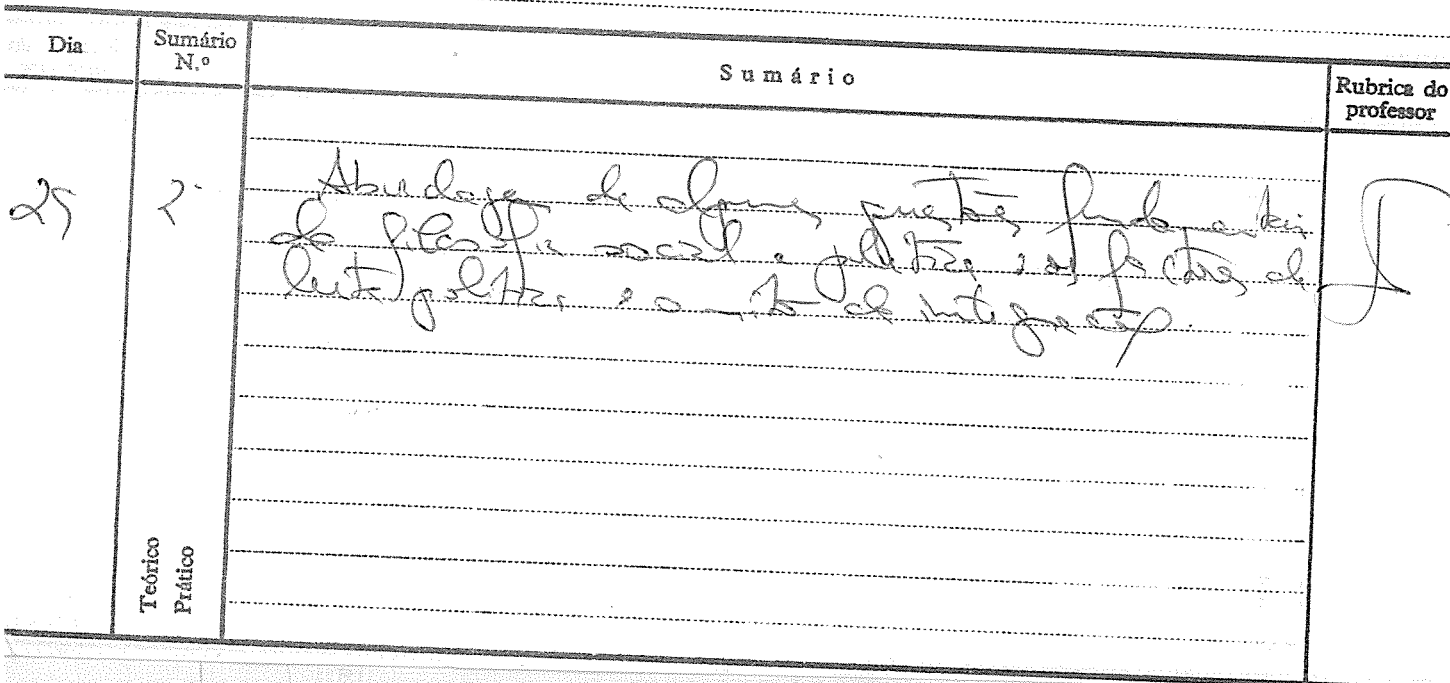 Dia
Sumário
N.º
Sumário
Rubrica do
professor
25
2º
Abordagem de algumas questões fundamentais
da filosofia social e política: os factores de
luta política e o mito de integração.
Teórico
Prático